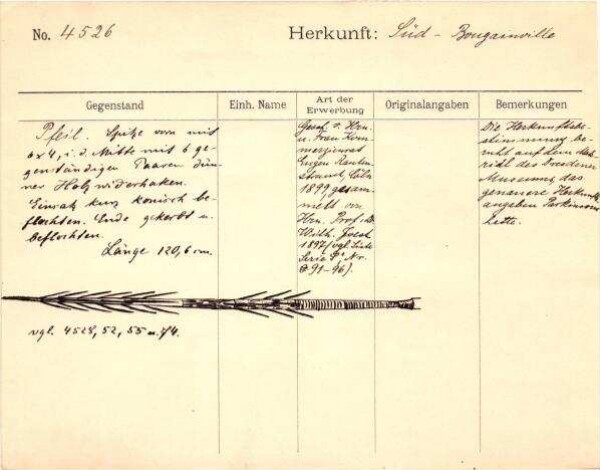 No. 4526
Herkunft: Süd - Bougainville
Gegenstand
Einh. Name
Art der Erwerbung
Originalangaben
Bemerkungen
Pfeil. Spitze vorn mit
6 x 4, i. d. Mitte mit 6 ge-
genständigen Paaren dün-
ner Holzwiderhaken.
Einsatz kurz konisch be-
flochten. Ende gekerbt u.
beflochten.
Länge 120,6 cm.
Gesch. v. Hrn.
u. Frau Kom-
merzienrat
Eugen Rauten-
strauch, Cöln
1899, gesam-
melt von
Hrn. Prof. Dr.
Wilh. Joest
1897 (vgl. Liste
Serie Nr.
91-96).
Die Herkunftsbe-
stimmung be-
ruht auf dem
des Dresdener
Museums, das
genauere Herkunfts-
angaben Parkinsons
hatte.
vgl. 4528, 52, 55 u. 74.